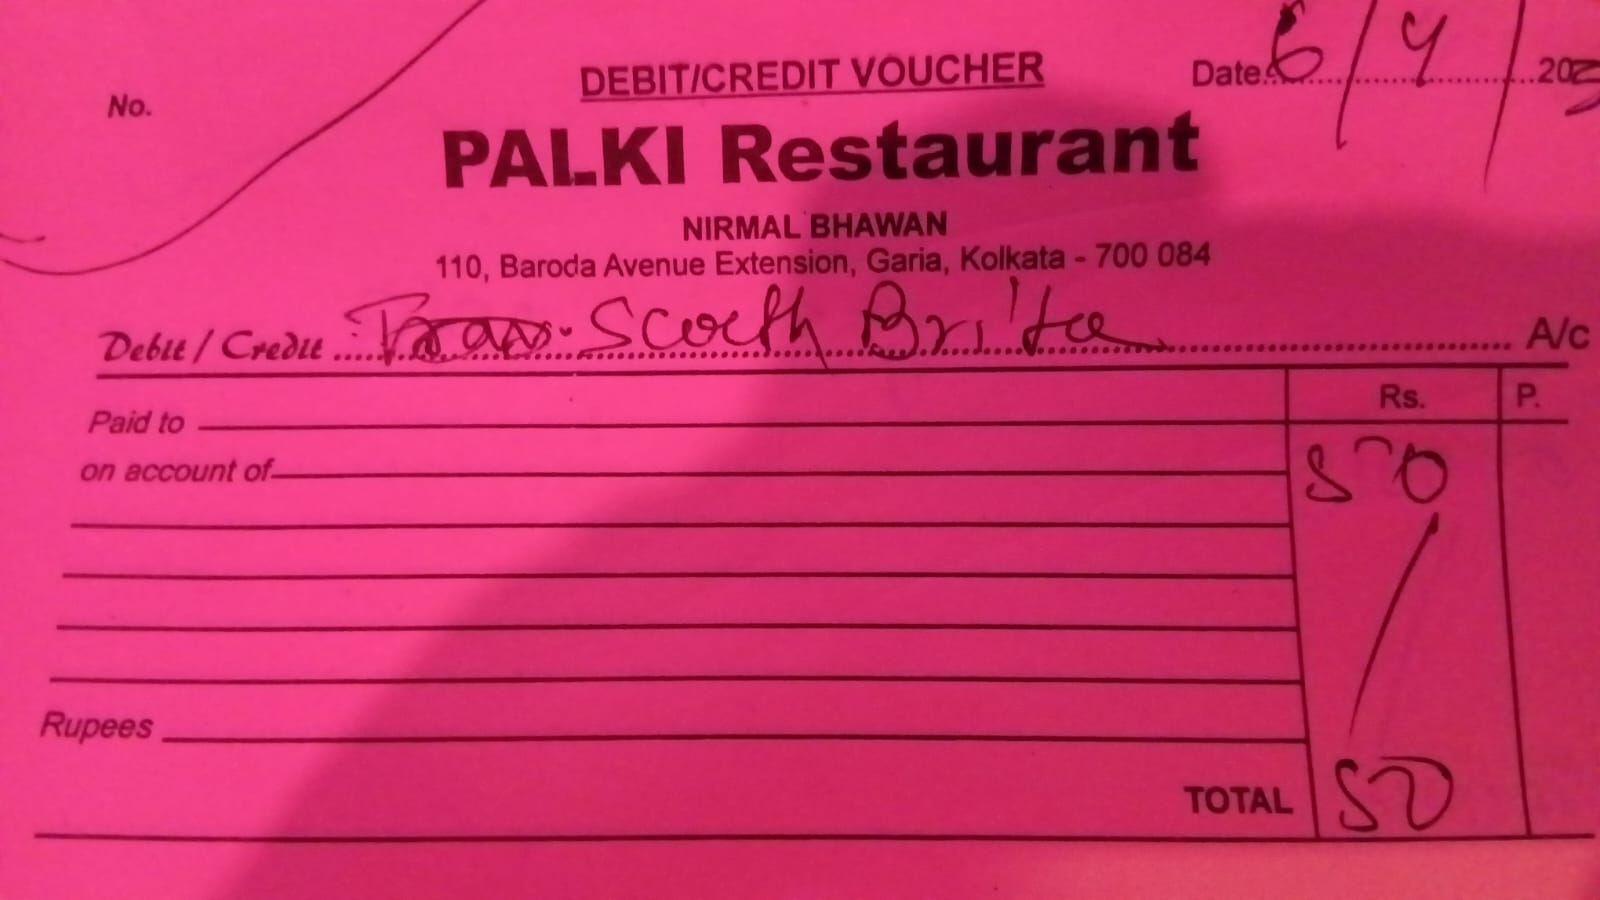 No.
DEBIT/CREDIT VOUCHER
Date 6/4/202
PALKI Restaurant
NIRMAL BHAWAN
110, Baroda Avenue Extension, Garia, Kolkata - 700 084
Debit / Credit Scoth Brite A/c
Rs. P.
Paid to
on account of
Rupees
TOTAL 50